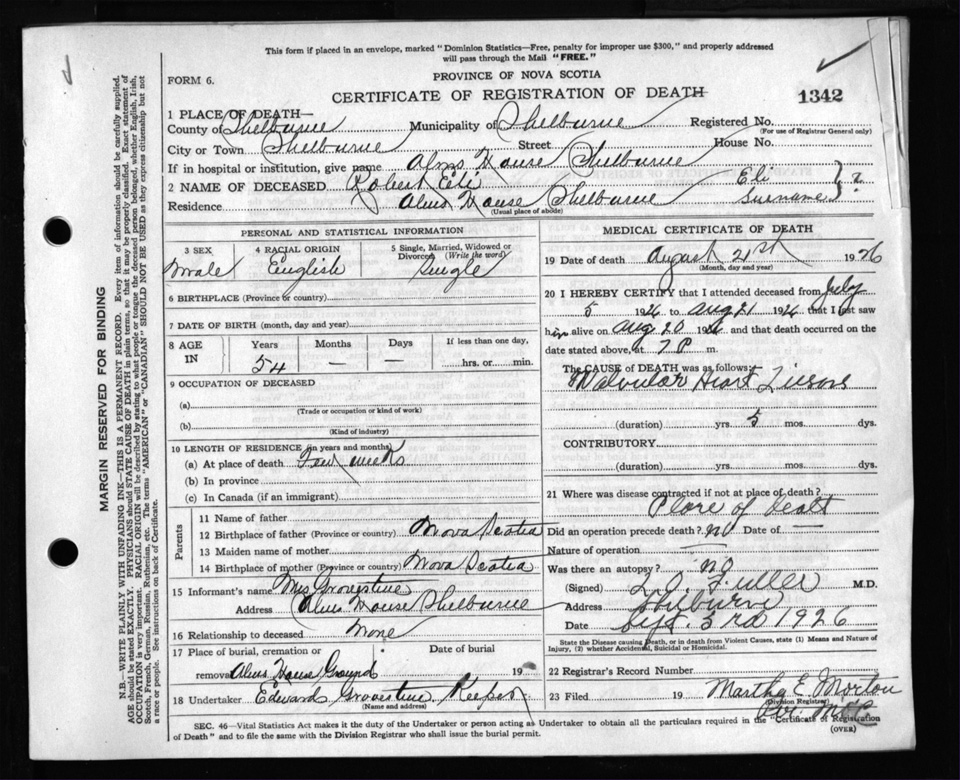 This form if placed in an envelope, marked "Dominion Statistics—Free, penalty for improper use $300," and properly addressed
will pass through the Mail "FREE."
FORM 6.
PROVINCE OF NOVA SCOTIA
CERTIFICATE OF REGISTRATION OF DEATH
1342
1 PLACE OF DEATH—
County of Shelburne Municipality of Shelburne Registered No.
(For use of Registrar General only)
City or Town Shelburne Street House No.
If in hospital or institution, give name Alms House Shelburne
2 NAME OF DECEASED Robert Eli Eli
Surname } ?
Residence Alms House Shelburne
(Usual place of abode)
PERSONAL AND STATISTICAL INFORMATION
3 SEX 4 RACIAL ORIGIN 5 Single, Married, Widowed or
Divorced (Write the word)
Male English Single
6 BIRTHPLACE (Province or country)
7 DATE OF BIRTH (month, day and year)
8 AGE
IN
Years Months Days If less than one day,
54 — — hrs. or min.
9 OCCUPATION OF DECEASED
(a)
(Trade or occupation or kind of work)
(b)
(Kind of industry)
10 LENGTH OF RESIDENCE (in years and months)
(a) At place of death Few weeks
(b) In province
(c) In Canada (if an immigrant)
Parents
11 Name of father
12 Birthplace of father (Province or country) Nova Scotia
13 Maiden name of mother
14 Birthplace of mother (Province or country) Nova Scotia
15 Informant's name Mrs Grovestine
Address Alms House Shelburne
16 Relationship to deceased None
17 Place of burial, cremation or Date of burial
removal Alms House Ground 19
18 Undertaker Edward Grovestine Keeper
(Name and address)
MEDICAL CERTIFICATE OF DEATH
19 Date of death August 21st 1926
(Month, day and year)
20 I HEREBY CERTIFY that I attended deceased from July
5 1926 to Aug 21 1926 that I last saw
him alive on Aug 20 1926 and that death occurred on
date stated above, at 7 P m.
The CAUSE of DEATH was as follows:
Valvular Heart
(duration) yrs. 5 mos. dys.
CONTRIBUTORY
(duration) yrs. mos. dys.
21 Where was disease contracted if not at place of death?
Place of Death
Did an operation precede death? no Date of —
Nature of operation —
Was there an autopsy? no
(Signed) Fuller M.D.
Address Shelburne
Date Sept. 3rd 1926
State the Disease causing Death, or in death from Violent Causes, state (1) Means and Nature of
Injury, (2) whether Accidental, Suicidal or Homicidal.
22 Registrar's Record Number
23 Filed 19 Martha E. Morton
(Division Registrar)
SEC. 46—Vital Statistics Act makes it the duty of the Undertaker or person acting as Undertaker to obtain all the particulars required in the "Certificate of Registration
of Death" and to file the same with the Division Registrar who shall issue the burial permit.
(OVER)
MARGIN RESERVED FOR BINDING
N.B.—WRITE PLAINLY WITH UNFADING INK—THIS IS A PERMANENT RECORD. Every item of information should be carefully supplied.
AGE should be stated EXACTLY. PHYSICIANS should STATE CAUSE OF DEATH in plain terms, so that it may be properly classified. Exact statement of
OCCUPATION is very important. RACIAL ORIGIN will be described by stating to what people or tongue the deceased person belonged, whether English, Irish,
Scotch, French, German, Russian, Ruthenian, etc. The terms "AMERICAN" or "CANADIAN" SHOULD NOT BE USED as they express citizenship but not
a race or people. See instructions on back of Certificate.